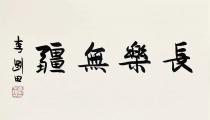 長樂無疆
李刚田